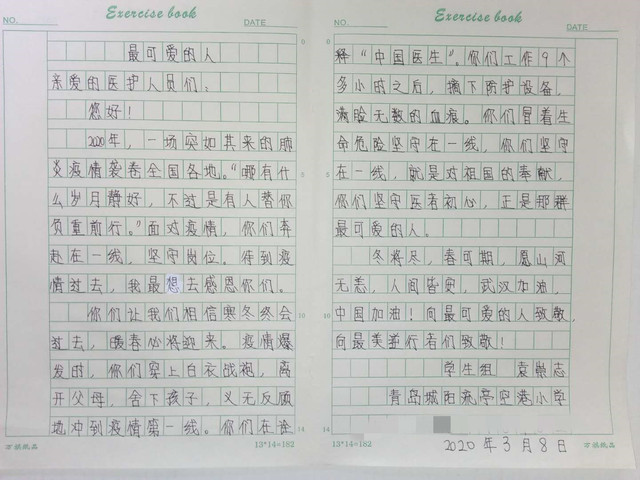 Exercise book
NO.
DATE
最可爱的人
亲爱的医护人员们：
您好！
2020年，一场突如其来的肺
炎疫情袭卷全国各地。“哪有什
么岁月静好，不过是有人替你
负重前行。”面对疫情，你们奔
赴在一线，坚守岗位。待到疫
情过去，我最想去感恩你们。
你们让我们相信寒冬终会
过去，暖春必将迎来。疫情爆
发时，你们穿上白衣战袍，离
开父母，舍下孩子，义无反顾
地冲到疫情第一线。你们在诠
万福纸品
13*14=182
Exercise book
NO.
DATE
释“中国医生”。你们工作9个
多小时之后，摘下防护设备，
满脸无数的血痕。你们冒着生
命危险坚守在一线，你们坚守
在一线，就是对祖国的奉献，
你们坚守医者初心，正是那群
最可爱的人。
冬将尽，春可期，愿山河
无恙，人间皆安，武汉加油，
中国加油！向最可爱的人致敬，
向最美逆行者们致敬！
学生组 袁崇志
青岛城阳流亭空港小学
13*14=182
万福纸品
2020年3月8日
0
5
10
14